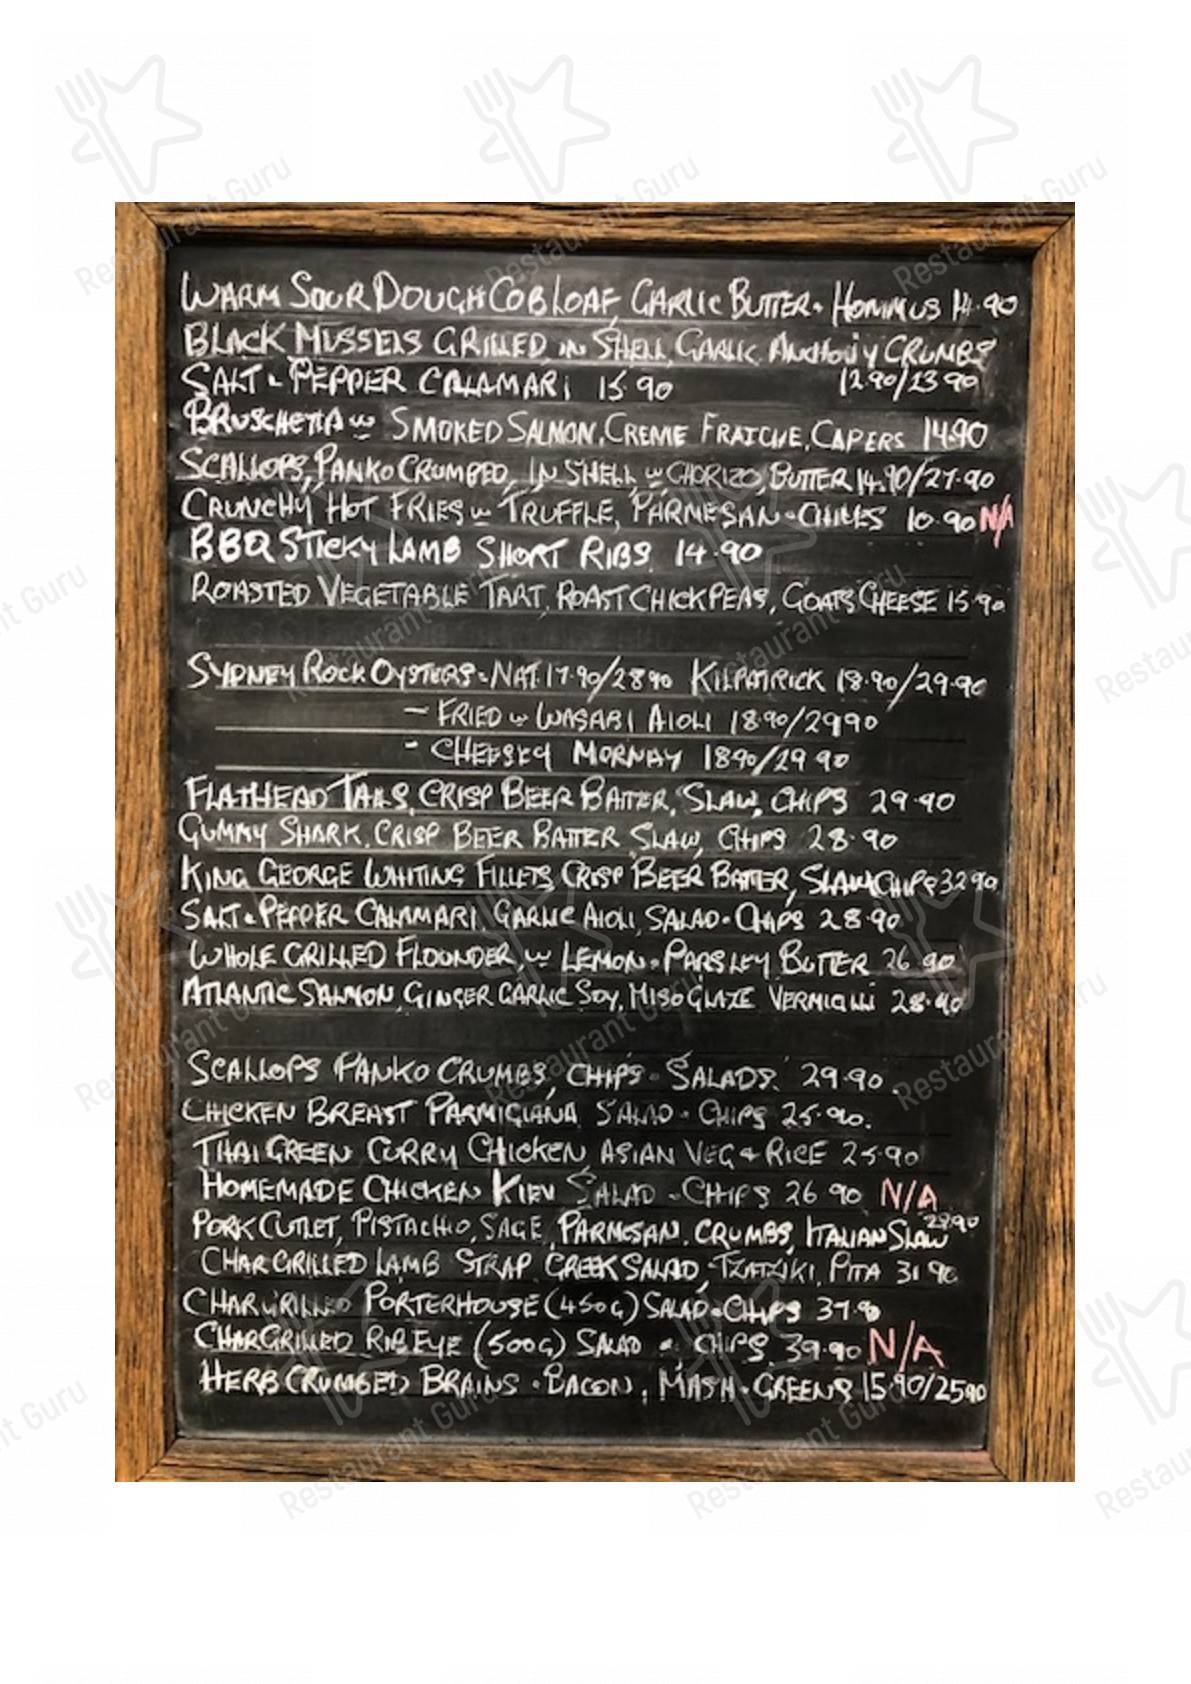 WARM SOUR DOUGH COB LOAF, GARLIC BUTTER + HOMMUS 14.90
BLACK MUSSELS GRILLED IN SHELL, GARLIC, ANCHOVY CRUMBS
SALT & PEPPER CALAMARI 15.90 12.90/23.90
BRUSCHETTA w SMOKED SALMON, CREME FRAICHE, CAPERS 14.90
SCALLOPS, PANKO CRUMBED, IN SHELL w CHORIZO, BUTTER 14.90/27.90
CRUNCHY HOT FRIES w TRUFFLE, PARMESAN + CHILLIES 10.90 N/A
BBQ STICKY LAMB SHORT RIBS 14.90
ROASTED VEGETABLE TART, ROAST CHICKPEAS, GOATS CHEESE 15.90
SYDNEY ROCK OYSTERS - NAT. 17.90/28.90 KILPATRICK 18.90/29.90
- FRIED w WASABI AIOLI 18.90/29.90
- CHEESEY MORNAY 18.90/29.90
FLATHEAD TAILS, CRISP BEER BATTER, SLAW, CHIPS 29.90
GUMMY SHARK, CRISP BEER BATTER SLAW, CHIPS 28.90
KING GEORGE WHITING FILLETS CRISP BEER BATTER, SLAW CHIPS 32.90
SALT & PEPPER CALAMARI, GARLIC AIOLI, SALAD + CHIPS 28.90
WHOLE GRILLED FLOUNDER, w LEMON + PARSLEY BUTTER 26.90
ATLANTIC SALMON, GINGER GARLIC SOY, MISO GLAZE VERMICILLI 28.90
SCALLOPS PANKO CRUMBS, CHIPS + SALADS 29.90.
CHICKEN BREAST PARMIGIANA SALAD + CHIPS 25.90.
THAI GREEN CURRY CHICKEN ASIAN VEG + RICE 25.90
HOMEMADE CHICKEN KIEV SALAD + CHIPS 26.90 N/A
PORK CUTLET, PISTACHIO, SAGE, PARMESAN, CRUMBS, ITALIAN SLAW 28.90
CHARGRILLED LAMB STRAP GREEK SALAD, TZATZIKI, PITA 31.90
CHARGRILLED PORTERHOUSE (450G) SALAD + CHIPS 37.90
CHARGRILLED RIB EYE (500G) SALAD + CHIPS 39.90 N/A
HERB CRUMBED BRAINS + BACON, MASH + GREENS 15.90/25.90